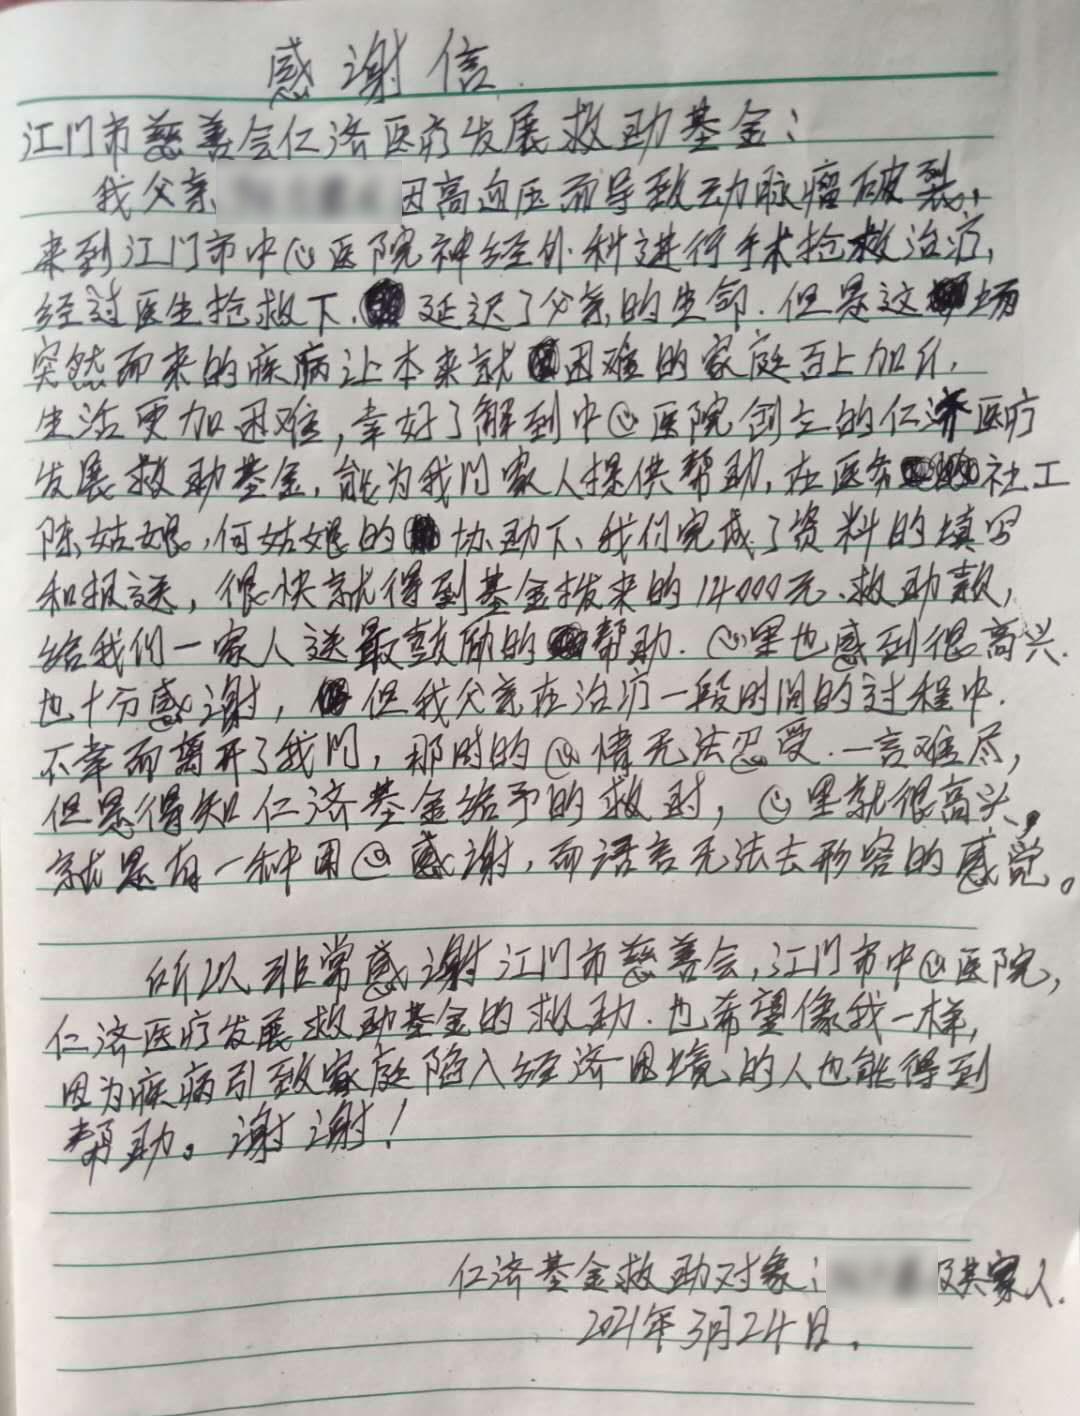 感谢信.
江门市慈善会仁济医疗发展救助基金：
我父亲因高血压而导致动脉瘤破裂，
来到江门市中心医院神经外科进行手术抢救治疗，
经过医生抢救下.延迟了父亲的生命.但是这场
突然而来的疾病让本来就困难的家庭百上加斤.
生活更加困难,幸好了解到中心医院创立的仁济医疗
发展救助基金,能为我们家人提供帮助,在医务社工
陈姑娘,何姑娘的协助下、我们完成了资料的填写
和报送，很快就得到基金拨来的14000元.救助款,
给我们一家人送最鼓励的帮助.心里也感到很高兴.
也十分感谢，但我父亲在治疗一段时间的过程中.
不幸而离开了我们，那时的心情无法忍受.一言难尽,
但是得知仁济基金给予的救时，心里就很高兴,
就是有一种用心感谢,而语言无法去形容的感觉。
所以非常感谢江门市慈善会,江门市中心医院,
仁济医疗发展救助基金的救助.也希望像我一样,
因为疾病引致家庭陷入经济困境的人也能得到
帮助。谢谢!
仁济基金救助对象：及其家人.
2021年3月24日.